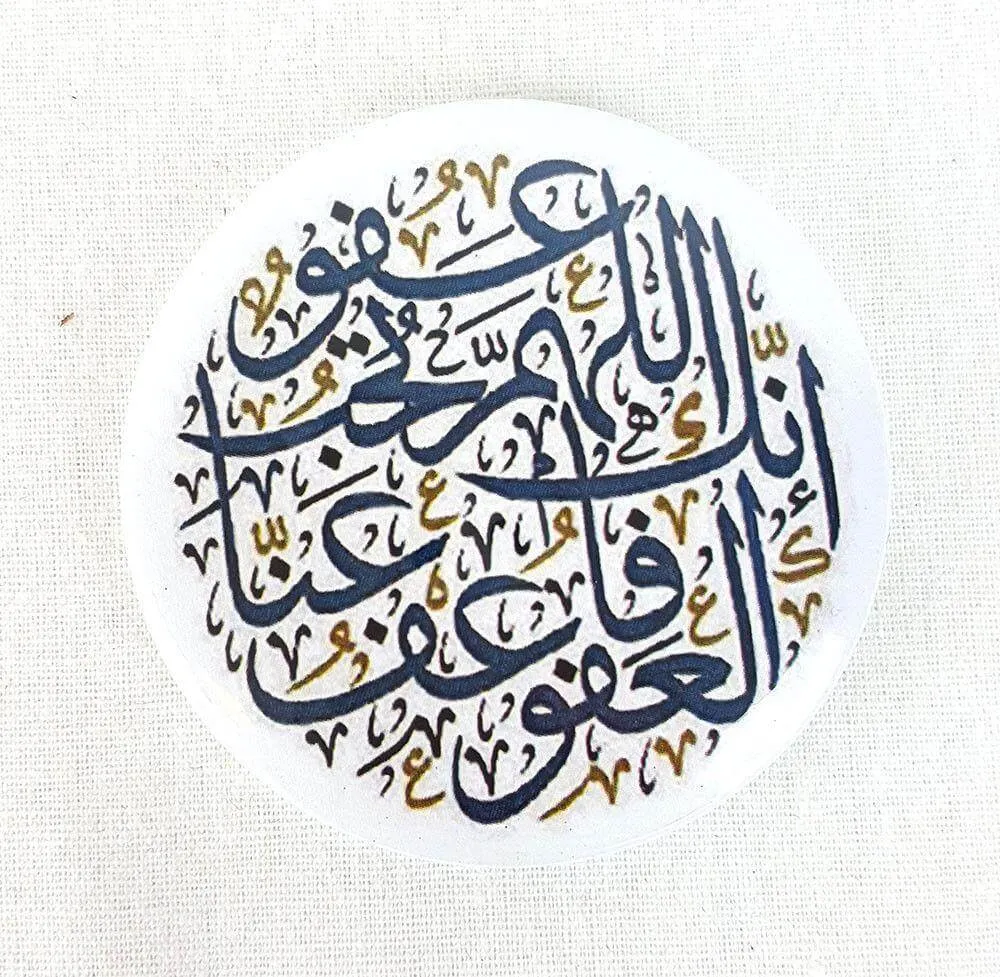 اللهم إنّك عفو تحب العفو فاعف عنّا